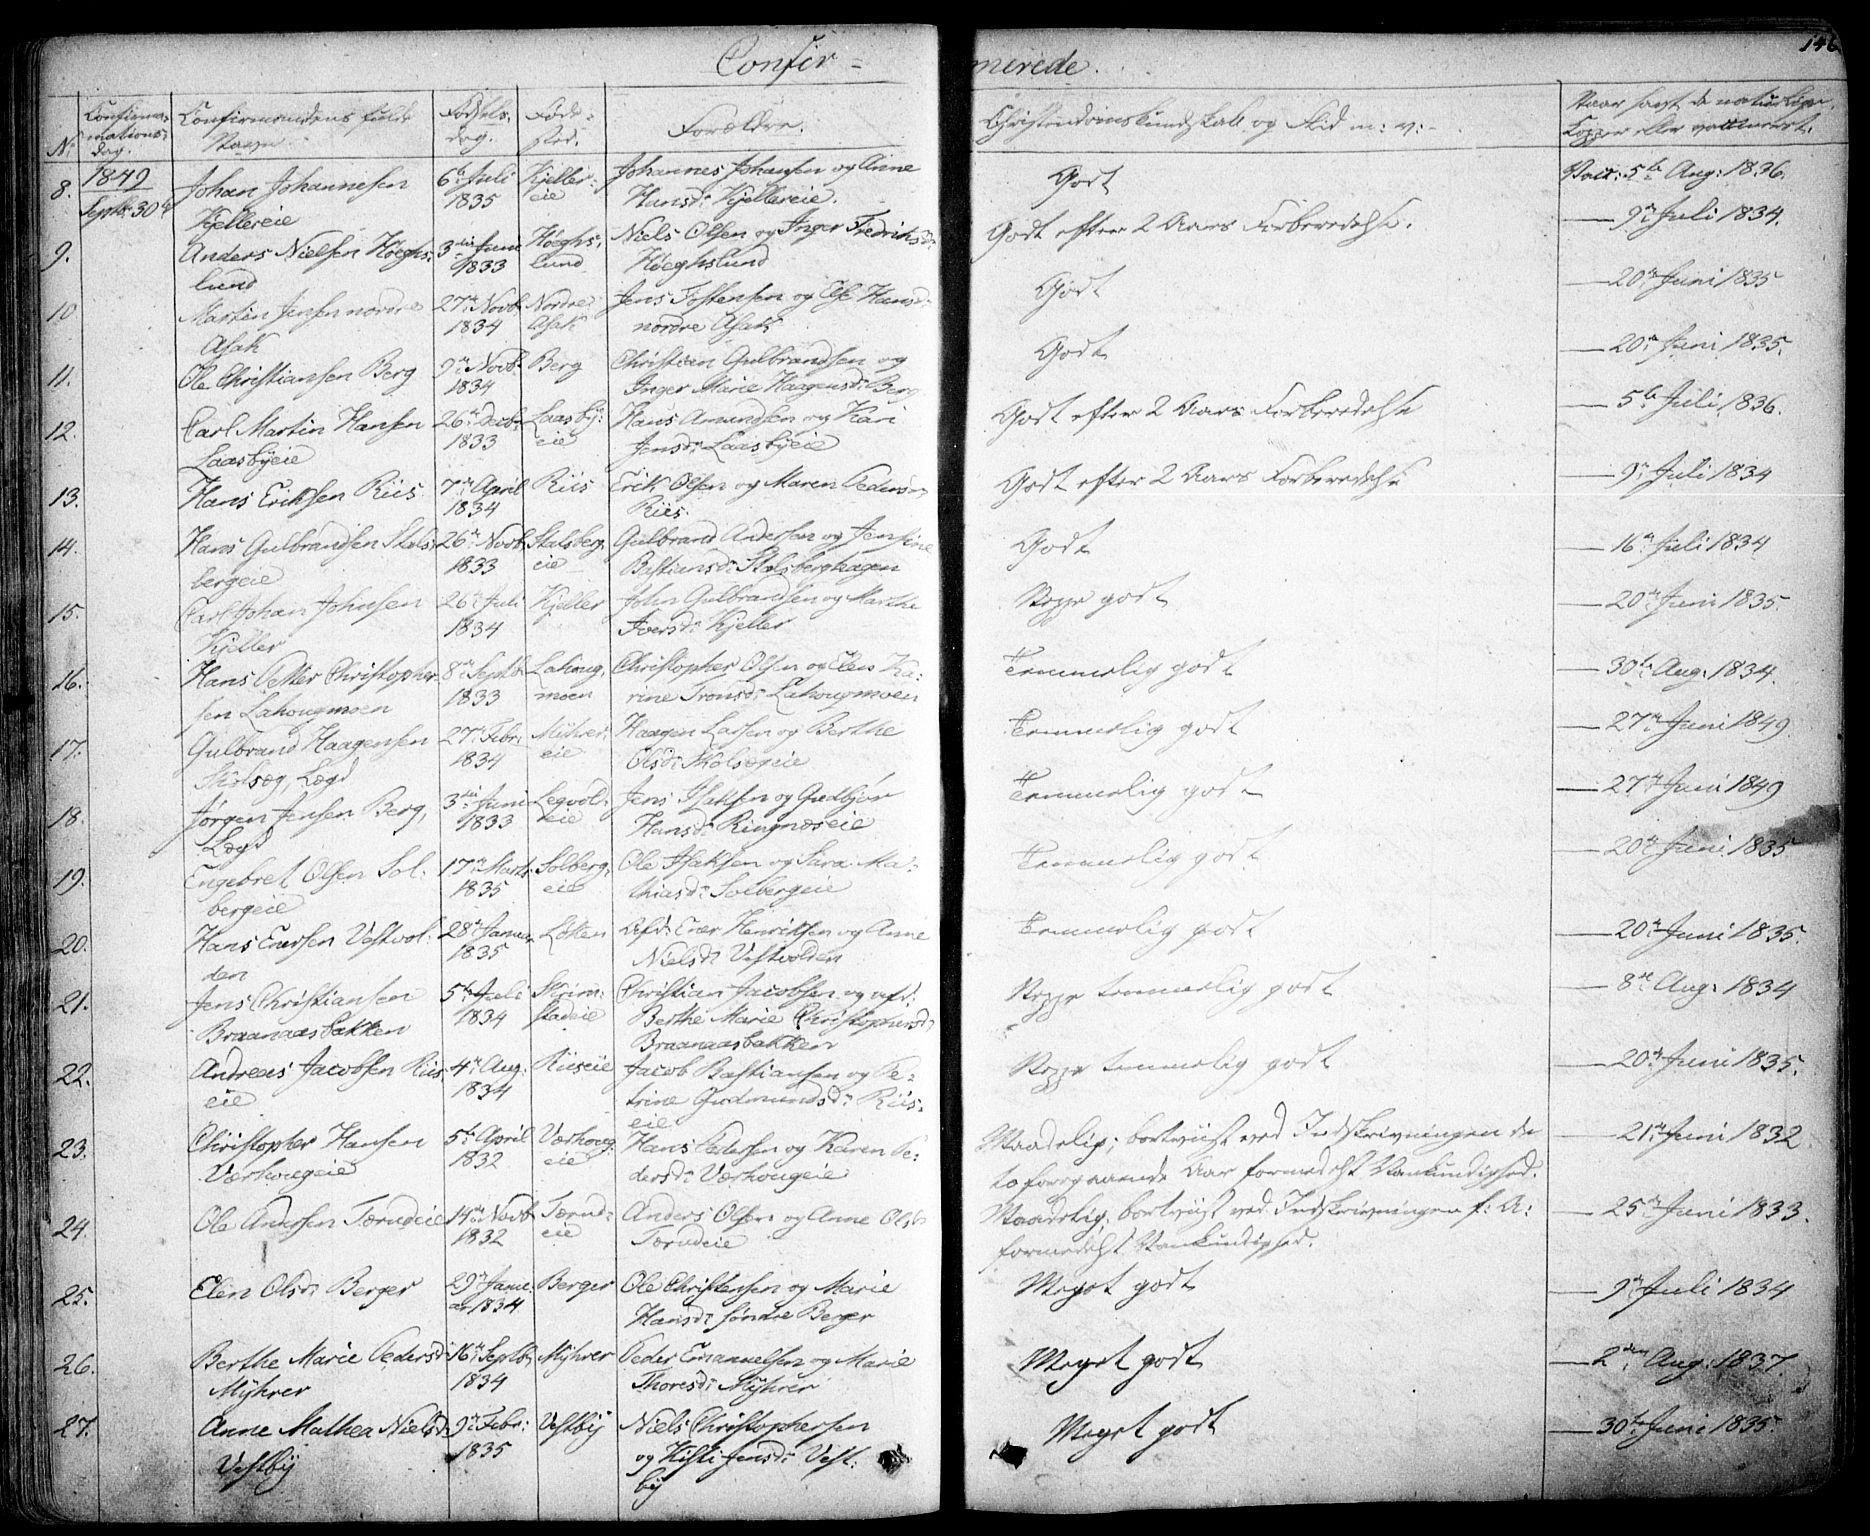 146
Confir = merede.
No
Confirmations-dag.
Confirmandens fulde Navn.
Fødsels-dag.
Føde-sted.
Forældre.
Christendomskundskab og Flid m: v:
Naar havt de naturlige Kopper eller vaccineret.
1849
Septbr: 30te
8.
Johan Johannesen
Kjellereie
6te Juli
1835
Kjeller-
eie
Johannes Johansen og Anne
Hansd: Kjellereie.
Godt
Vacc: 5te Aug: 1836.
9.
Anders Nielsen Høeghs-
lund
3die Juni
1833
Høeghs-
lund
Niels Olsen og Inger Fredriksd:
Høeghslund
Godt efter 2 Aars Forberedelse.
— 9de Juli 1834.
10
Martin Jensen nordre
Asak
27de Novb.
1834
Nordre
Asak
Jens Tostensen og Else Hansd:
nordre Asak
Godt
— 20de Juni 1835
11.
Ole Christiansen Berg
9de Novb.
1834
Berg
Christian Gulbrandsen og
Inger Marie Haagensd: Berg
Godt
— 20de Juni 1835.
12.
Carl Martin Hansen
Laasbyeie
26de Decb.
1833
Laasby-
eie
Hans Amundsen og Kari
Jensd: Laasbyeie
Godt efter 2 Aars Forberedelse
— 5te Juli 1836.
13.
Hans Eriksen Riis
7de April
1834
Riis
Erik Olsen og Maren Pedersd:
Riis.
Godt efter 2 Aars Forberedelse
— 9de Juli 1834
14.
Hans Gulbrandsen Stals-
bergeie
26de Novb.
1833
Stalsberg
eie
Gulbrand Andersen og Jensine
Bastiansd: Stalsberghagen
Godt
— 16de Juli 1834
15.
Carl Johan Johnsen
Kjeller
26de Juli
1834
Kjeller
John Gulbrandsen og Marthe
Iversd: Kjeller
Neppe godt
— 20de Juni 1835.
16.
Hans Petter Christopher-
sen Lahougmoen
8de Septb.
1833
Lahoug-
moen
Christopher Olsen og Elen Ka-
rine Tronsd: Lahougmoen
Temmelig godt
— 30te Aug: 1834.
17.
Gulbrand Haagensen
Skolsæg, Lægd
27de Febr:
1834
Myhrer-
eie
Haagen Larsen og Berthe
Olsd: Skolsægeie
Temmelig godt
— 27de Juni 1849
18.
Jørgen Jensen Berg,
Lægd
3die Juni
1833
Legvold-
eie
Jens Isaksen og Gudbjør
Hansd: Ringnæseie
Temmelig godt
— 27de Juni 1849
19.
Engebret Olsen Sol-
bergeie
17de Marts
1835
Solberg-
eie
Ole Isaksen og Sara Ma-
thiasd: Solbergeie
Temmelig godt
— 20de Juni 1835
20.
Hans Enersen Vestvol-
den
28de Januar
1835
Løken
Afd: Ener Henriksen og Anne
Nielsd: Vestvolden
Temmelig godt
— 20de Juni 1835.
21.
Jens Christiansen
Braanaasbakken
5te Juli
1834
Skrim-
stadeie
Christian Jacobsen og afd:
Berthe Marie Christophersd:
Braanaasbakken
Neppe temmelig godt
— 8de Aug: 1834
22.
Andreas Jacobsen Riis-
eie
4de Aug:
1834
Riiseie
Jacob Bastiansen og Pe-
trine Gudmundsd: Riis-
eie
Neppe temmelig godt
— 20de Juni 1835.
23.
Christopher Hansen
Værhougeie
5te April
1832
Værhoug-
eie
Hans Pedersen og Karen Pe-
dersd: Værhougeie
Maadelig; bortviist ved Indskrivningen de
to foregaaende Aar formedelst Vankundighed.
— 21de Juni 1832
24.
Ole Andersen Tærudeie
14de Novb.
1832
Tærud-
eie
Anders Olsen og Anne Olsd:
Tærudeie
Maadelig; bortviist ved Indskrivningen f: A:
formedelst Vankundighed.
— 25de Juni 1833.
25.
Elen Olsd: Berger
29de Janu-
ar 1834
Berger
Ole Christensen og Marie
Hansd: søndre Berger
Meget godt
— 9de Juli 1834
26.
Berthe Marie Pedersd:
Myhrer
16de Septb.
1834
Myhrer
Peder Emanuelsen og Marie
Thoresd: Myhrer
Meget godt
— 2den Aug: 1837.
27.
Anne Mathea Nielsd:
Vestby
9de Febr:
1835
Vestby
Niels Christophersen
og Kisti Jensd: Vest-
by
Meget godt
— 30te Juni 1835.